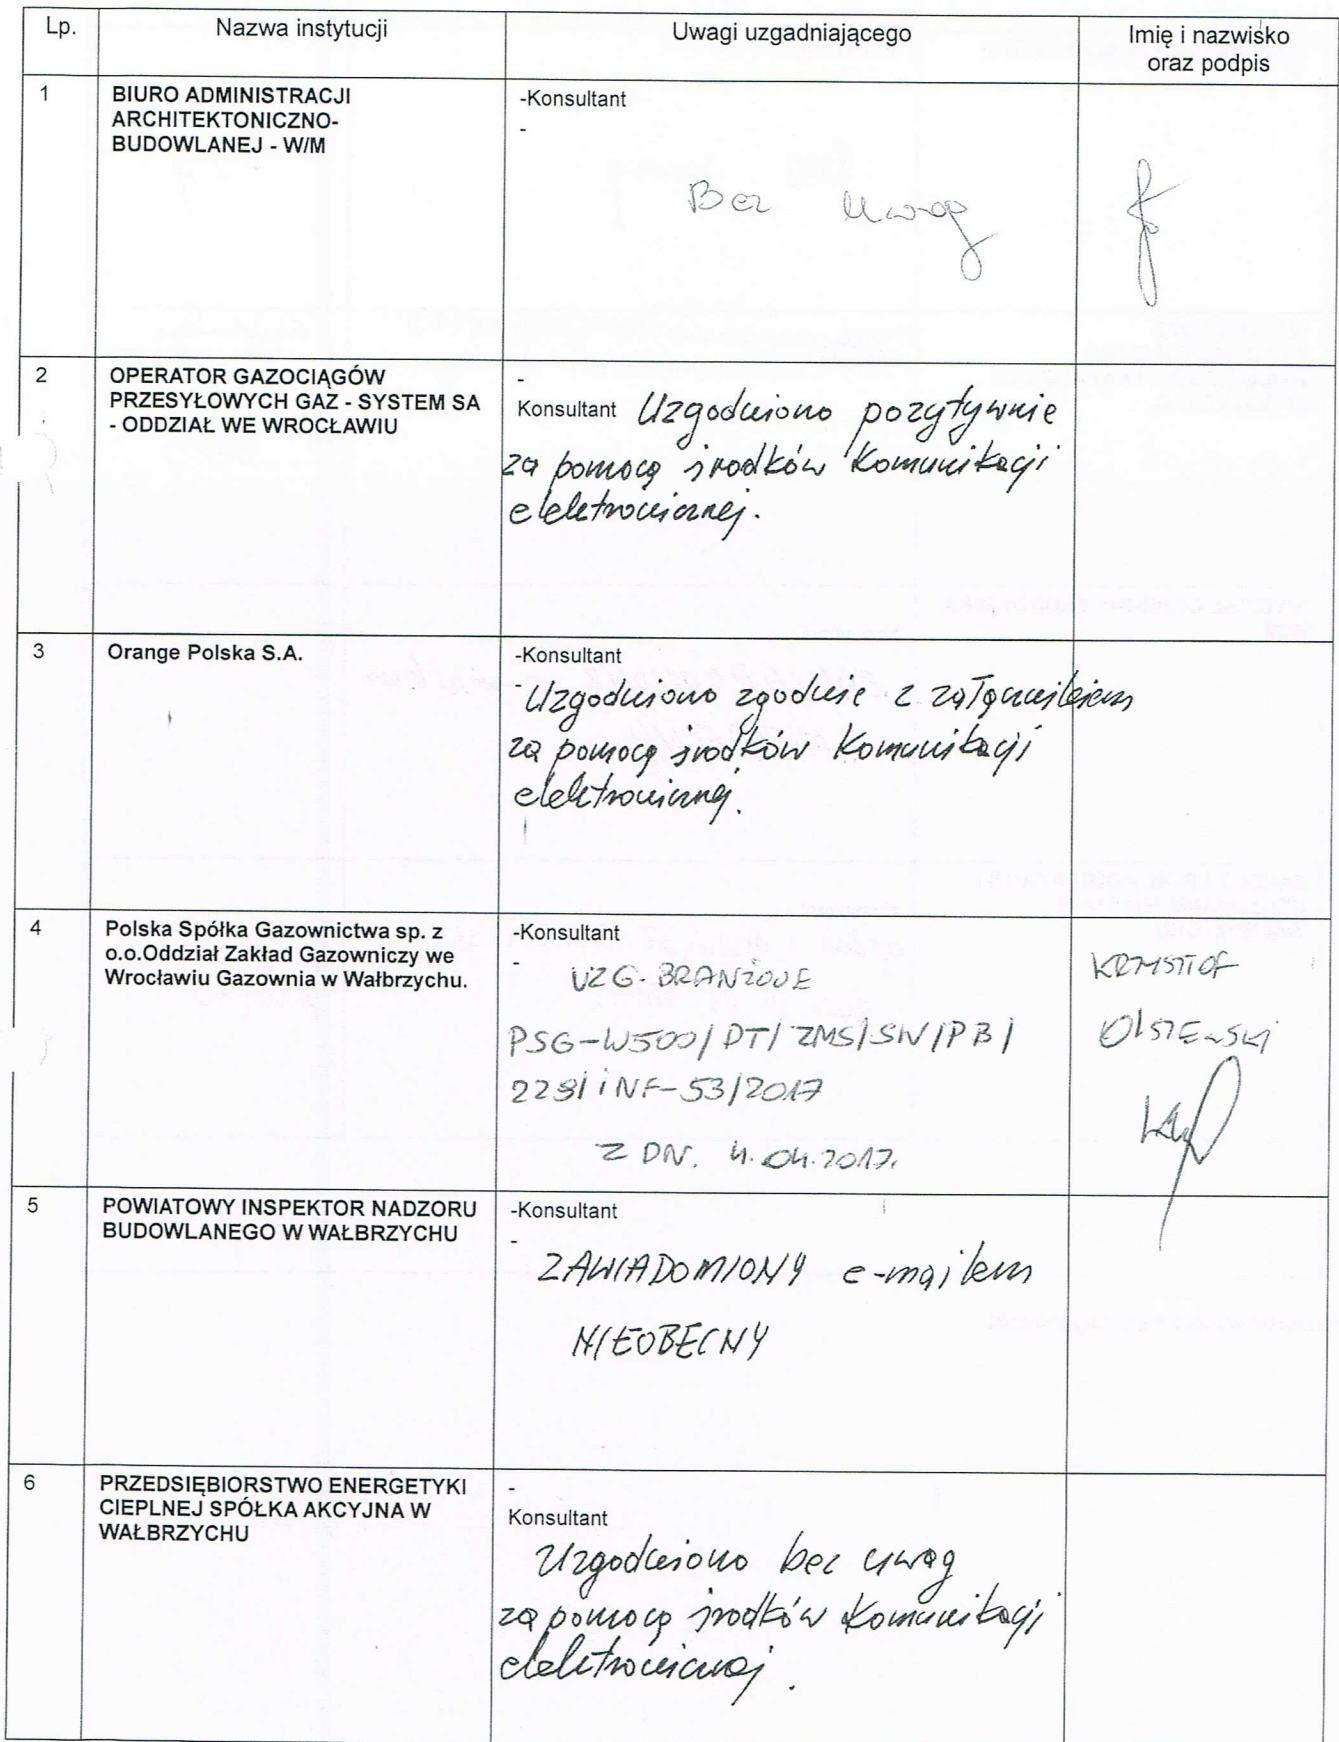 Lp.
Nazwa instytucji
Uwagi uzgadniającego
Imię i nazwisko
oraz podpis
1
BIURO ADMINISTRACJI
ARCHITEKTONICZNO-
BUDOWLANEJ - W/M
-Konsultant
-
Bez uwag
2
OPERATOR GAZOCIĄGÓW
PRZESYŁOWYCH GAZ - SYSTEM SA
- ODDZIAŁ WE WROCŁAWIU
-
Konsultant Uzgodniono pozytywnie
za pomocą środków komunikacji
elektronicznej.
3
Orange Polska S.A.
-Konsultant
-
Uzgodniono zgodnie z załącznikiem
za pomocą środków komunikacji
elektronicznej.
4
Polska Spółka Gazownictwa sp. z
o.o.Oddział Zakład Gazowniczy we
Wrocławiu Gazownia w Wałbrzychu.
-Konsultant
-
UZG. BRANŻOWE
PSG-W500/DT/ZMS/SW/PB/
228/INF-53/2017
Z DN. 4.04.2017.
KRZYSZTOF
OLSZEWSKI
5
POWIATOWY INSPEKTOR NADZORU
BUDOWLANEGO W WAŁBRZYCHU
-Konsultant
-
ZAWIADOMIONY e-mailem
NIEOBECNY
6
PRZEDSIĘBIORSTWO ENERGETYKI
CIEPLNEJ SPÓŁKA AKCYJNA W
WAŁBRZYCHU
-
Konsultant
Uzgodniono bez uwag
za pomocą środków komunikacji
elektronicznej.